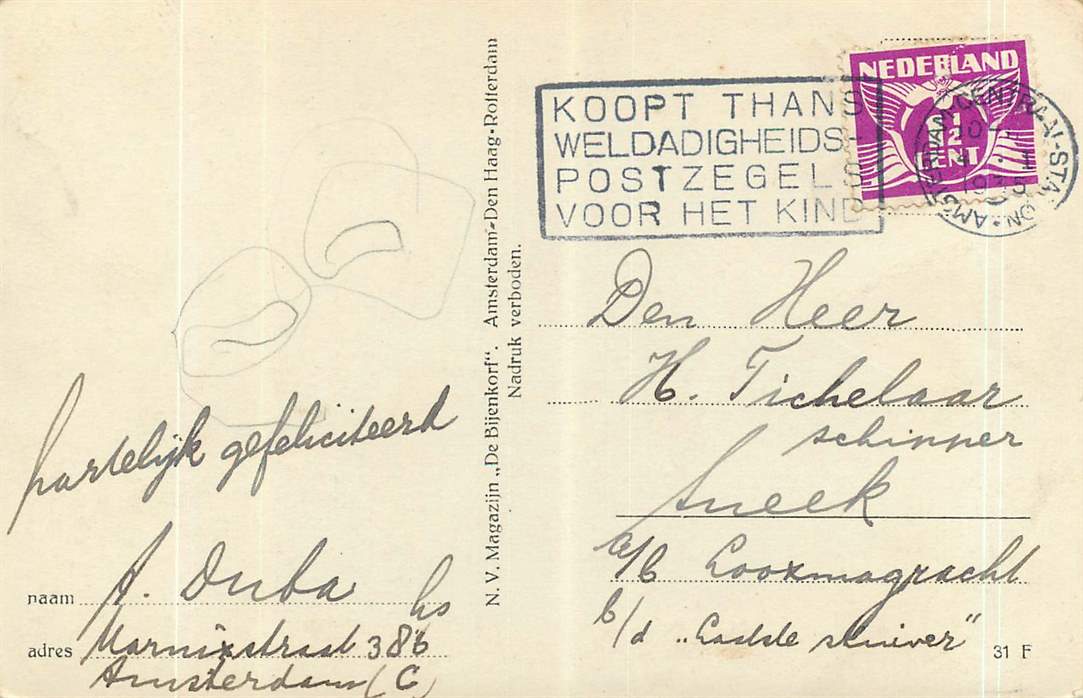 KOOPT THANS
WELDADIGHEIDS-
POSTZEGELS
VOOR HET KIND
NEDERLAND
1/2
CENT
AMSTERDAM-CENTRAAL-STATION
N. V. Magazijn „De Bijenkorf“. Amsterdam-Den Haag-Rotterdam
Nadruk verboden.
hartelijk gefeliciteerd
naam A. Duba hs
adres Marnixstraat 386
Amsterdam (C)
Den Heer
H. Tichelaar
schipper
Sneek
a/b Looxmagracht
b/d „Laatste stuiver“
31 F